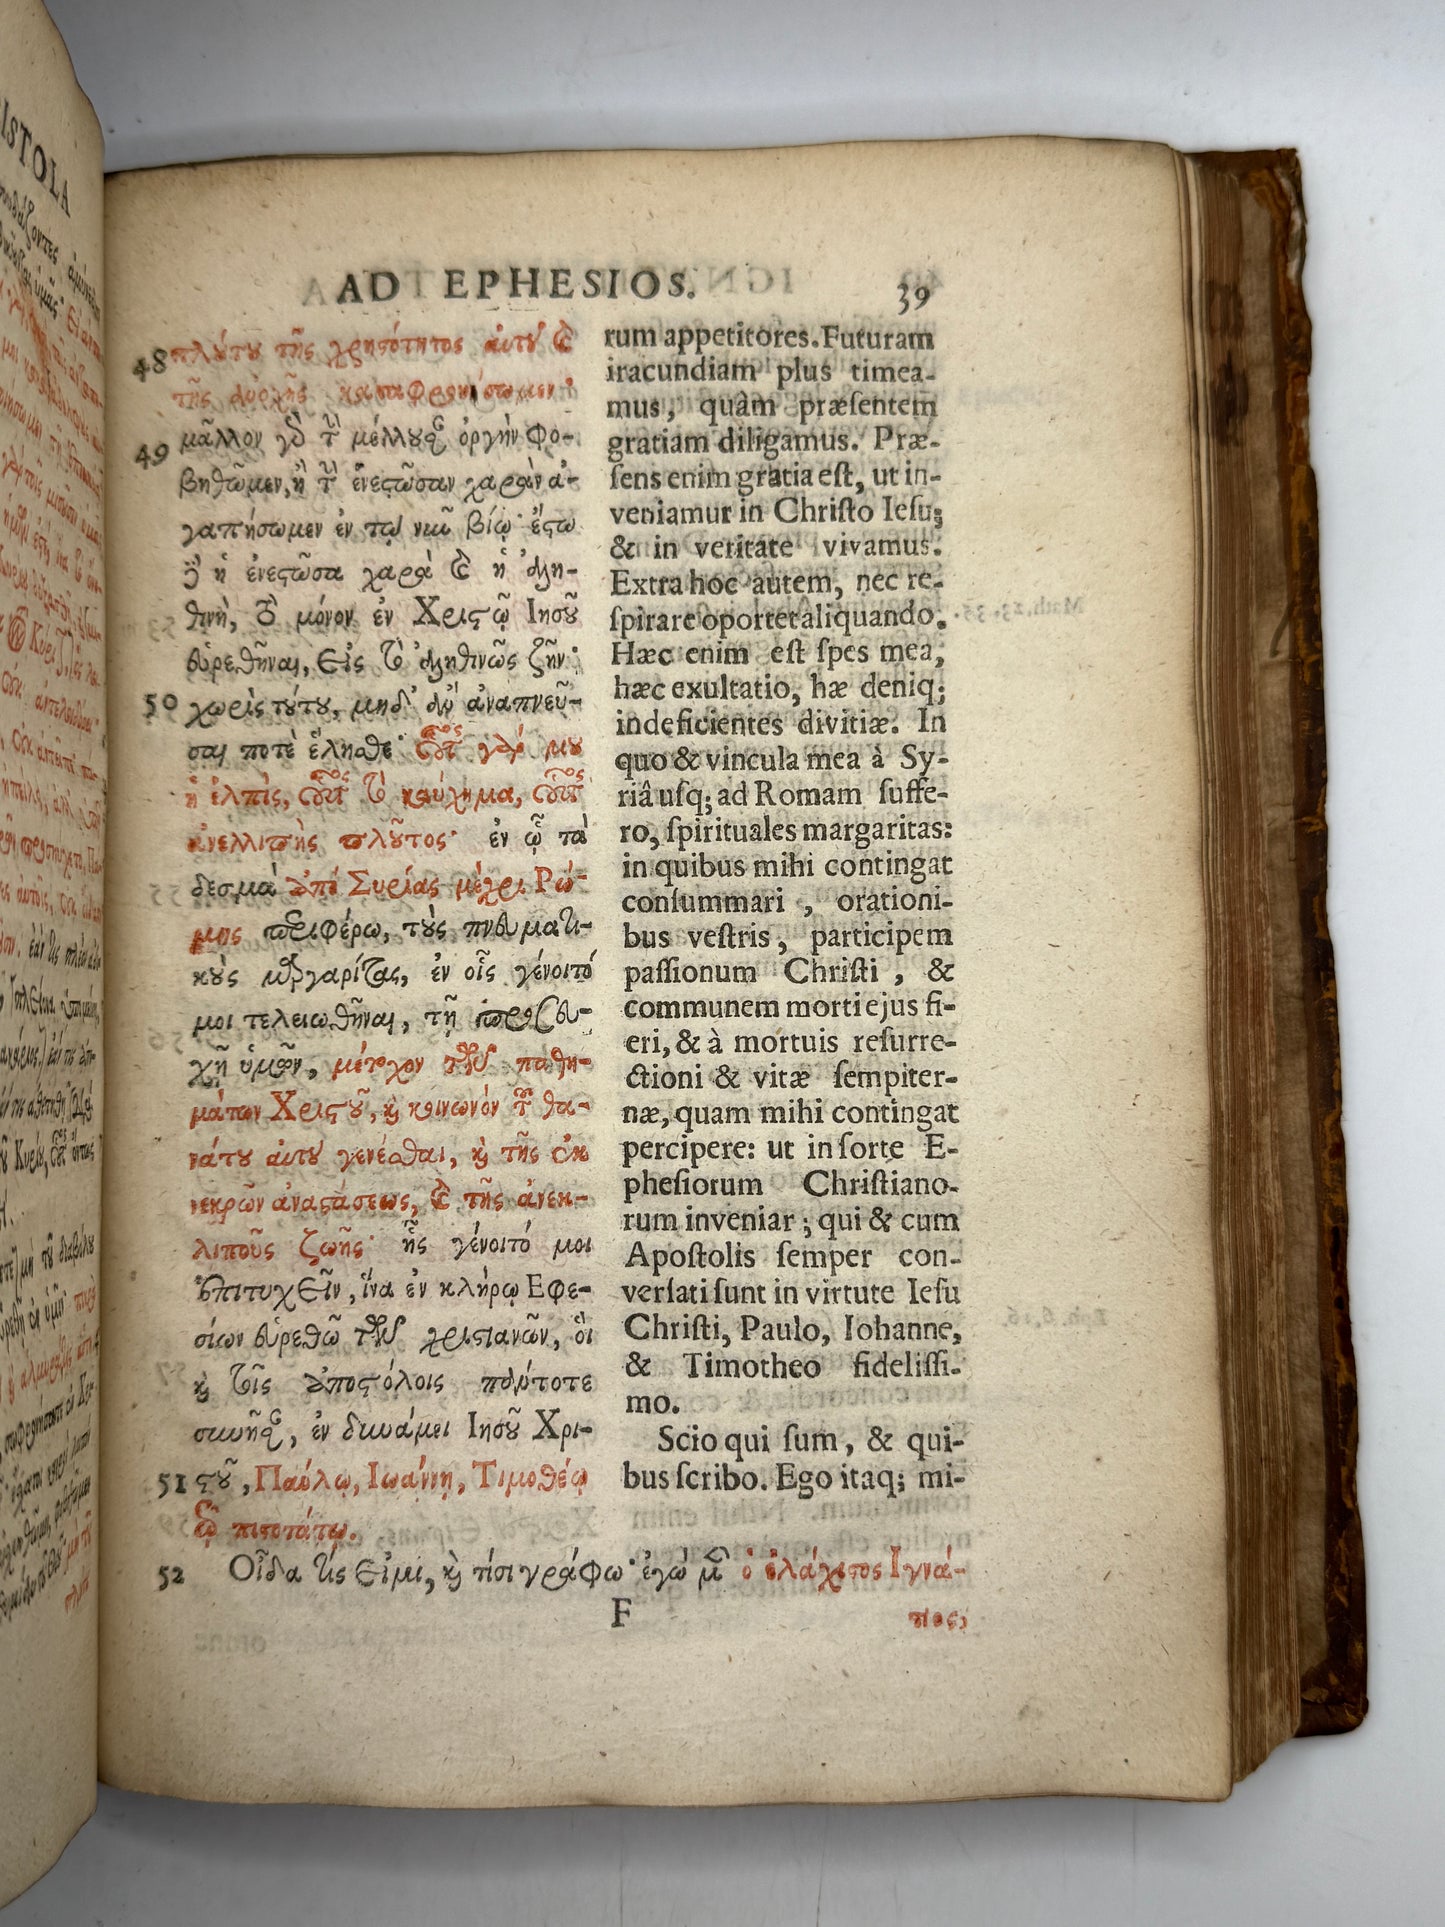 AD EPHESIOS. 39
48 πλούτου τῆς χρηστότητος αὐτοῦ καὶ
τῆς ἀνοχῆς καταφρονήσωμεν·
49 μᾶλλον γὰρ τὴν μέλλουσαν ὀργὴν φο-
βηθῶμεν, ἢ τὴν ἐνεστῶσαν χαρὰν ἀ-
γαπήσωμεν ἐν τῷ νῦν βίῳ· ἔστω
δὲ ἡ ἐνεστῶσα χαρὰ καὶ ἡ ἀλη-
θινὴ, τὸ μόνον ἐν Χριστῷ Ἰησοῦ
εὑρεθῆναι, εἰς τὸ ἀληθινῶς ζῆν·
50 χωρὶς τούτου, μηδ' ἂν ἀναπνεῦ-
σαι ποτὲ ἕλησθε· οὗτος γάρ μου
ἡ ἐλπὶς, οὗτος τὸ καύχημα, οὗτος
ἀνελλιπὴς πλοῦτος· ἐν ᾧ τὰ
δεσμὰ ἀπὸ Συρίας μέχρι Ρώ-
μης περιφέρω, τοὺς πνευματι-
κοὺς μαργαρίτας, ἐν οἷς γένοιτό
μοι τελειωθῆναι, τῇ προσευ-
χῇ ὑμῶν, μέτοχον τῶν παθη-
μάτων Χριστοῦ, καὶ κοινωνὸν τοῦ θα-
νάτου αὐτοῦ γενέσθαι, καὶ τῆς ἐκ
νεκρῶν ἀναστάσεως, καὶ τῆς ἀνεκ-
λιποῦς ζωῆς· ἧς γένοιτό μοι
ἐπιτυχεῖν, ἵνα ἐν κλήρῳ Εφε-
σίων εὑρεθῶ τῶν χριστιανῶν, οἳ
καὶ τοῖς ἀποστόλοις πάντοτε
συνῆσαν, ἐν δυνάμει Ἰησοῦ Χρι-
51 στοῦ, Παύλῳ, Ἰωάννῃ, Τιμοθέῳ
τῷ πιστοτάτῳ.
rum appetitores. Futuram
iracundiam plus timea-
mus, quàm præsentem
gratiam diligamus. Præ-
sens enim gratia est, ut in-
veniamur in Christo Iesu;
& in veritate vivamus.
Extra hoc autem, nec re-
spirare oportet aliquando.
Hæc enim est spes mea,
hæc exultatio, hæ deniq;
indeficientes divitiæ. In
quo & vincula mea à Sy-
riâ usq; ad Romam suffe-
ro, spirituales margaritas:
in quibus mihi contingat
consummari, orationi-
bus vestris, participem
passionum Christi, &
communem morti ejus fi-
eri, & à mortuis resurre-
ctioni & vitæ sempiter-
næ, quam mihi contingat
percipere: ut in sorte E-
phesiorum Christiano-
rum inveniar; qui & cum
Apostolis semper con-
versati sunt in virtute Iesu
Christi, Paulo, Iohanne,
& Timotheo fidelissi-
mo.
Scio qui sum, & qui-
bus scribo. Ego itaq; mi-
52 Οἶδα τίς εἰμι, καὶ τίσι γράφω· ἐγὼ μὲν ὁ ἐλάχιστος Ιγνά-
F τιος,